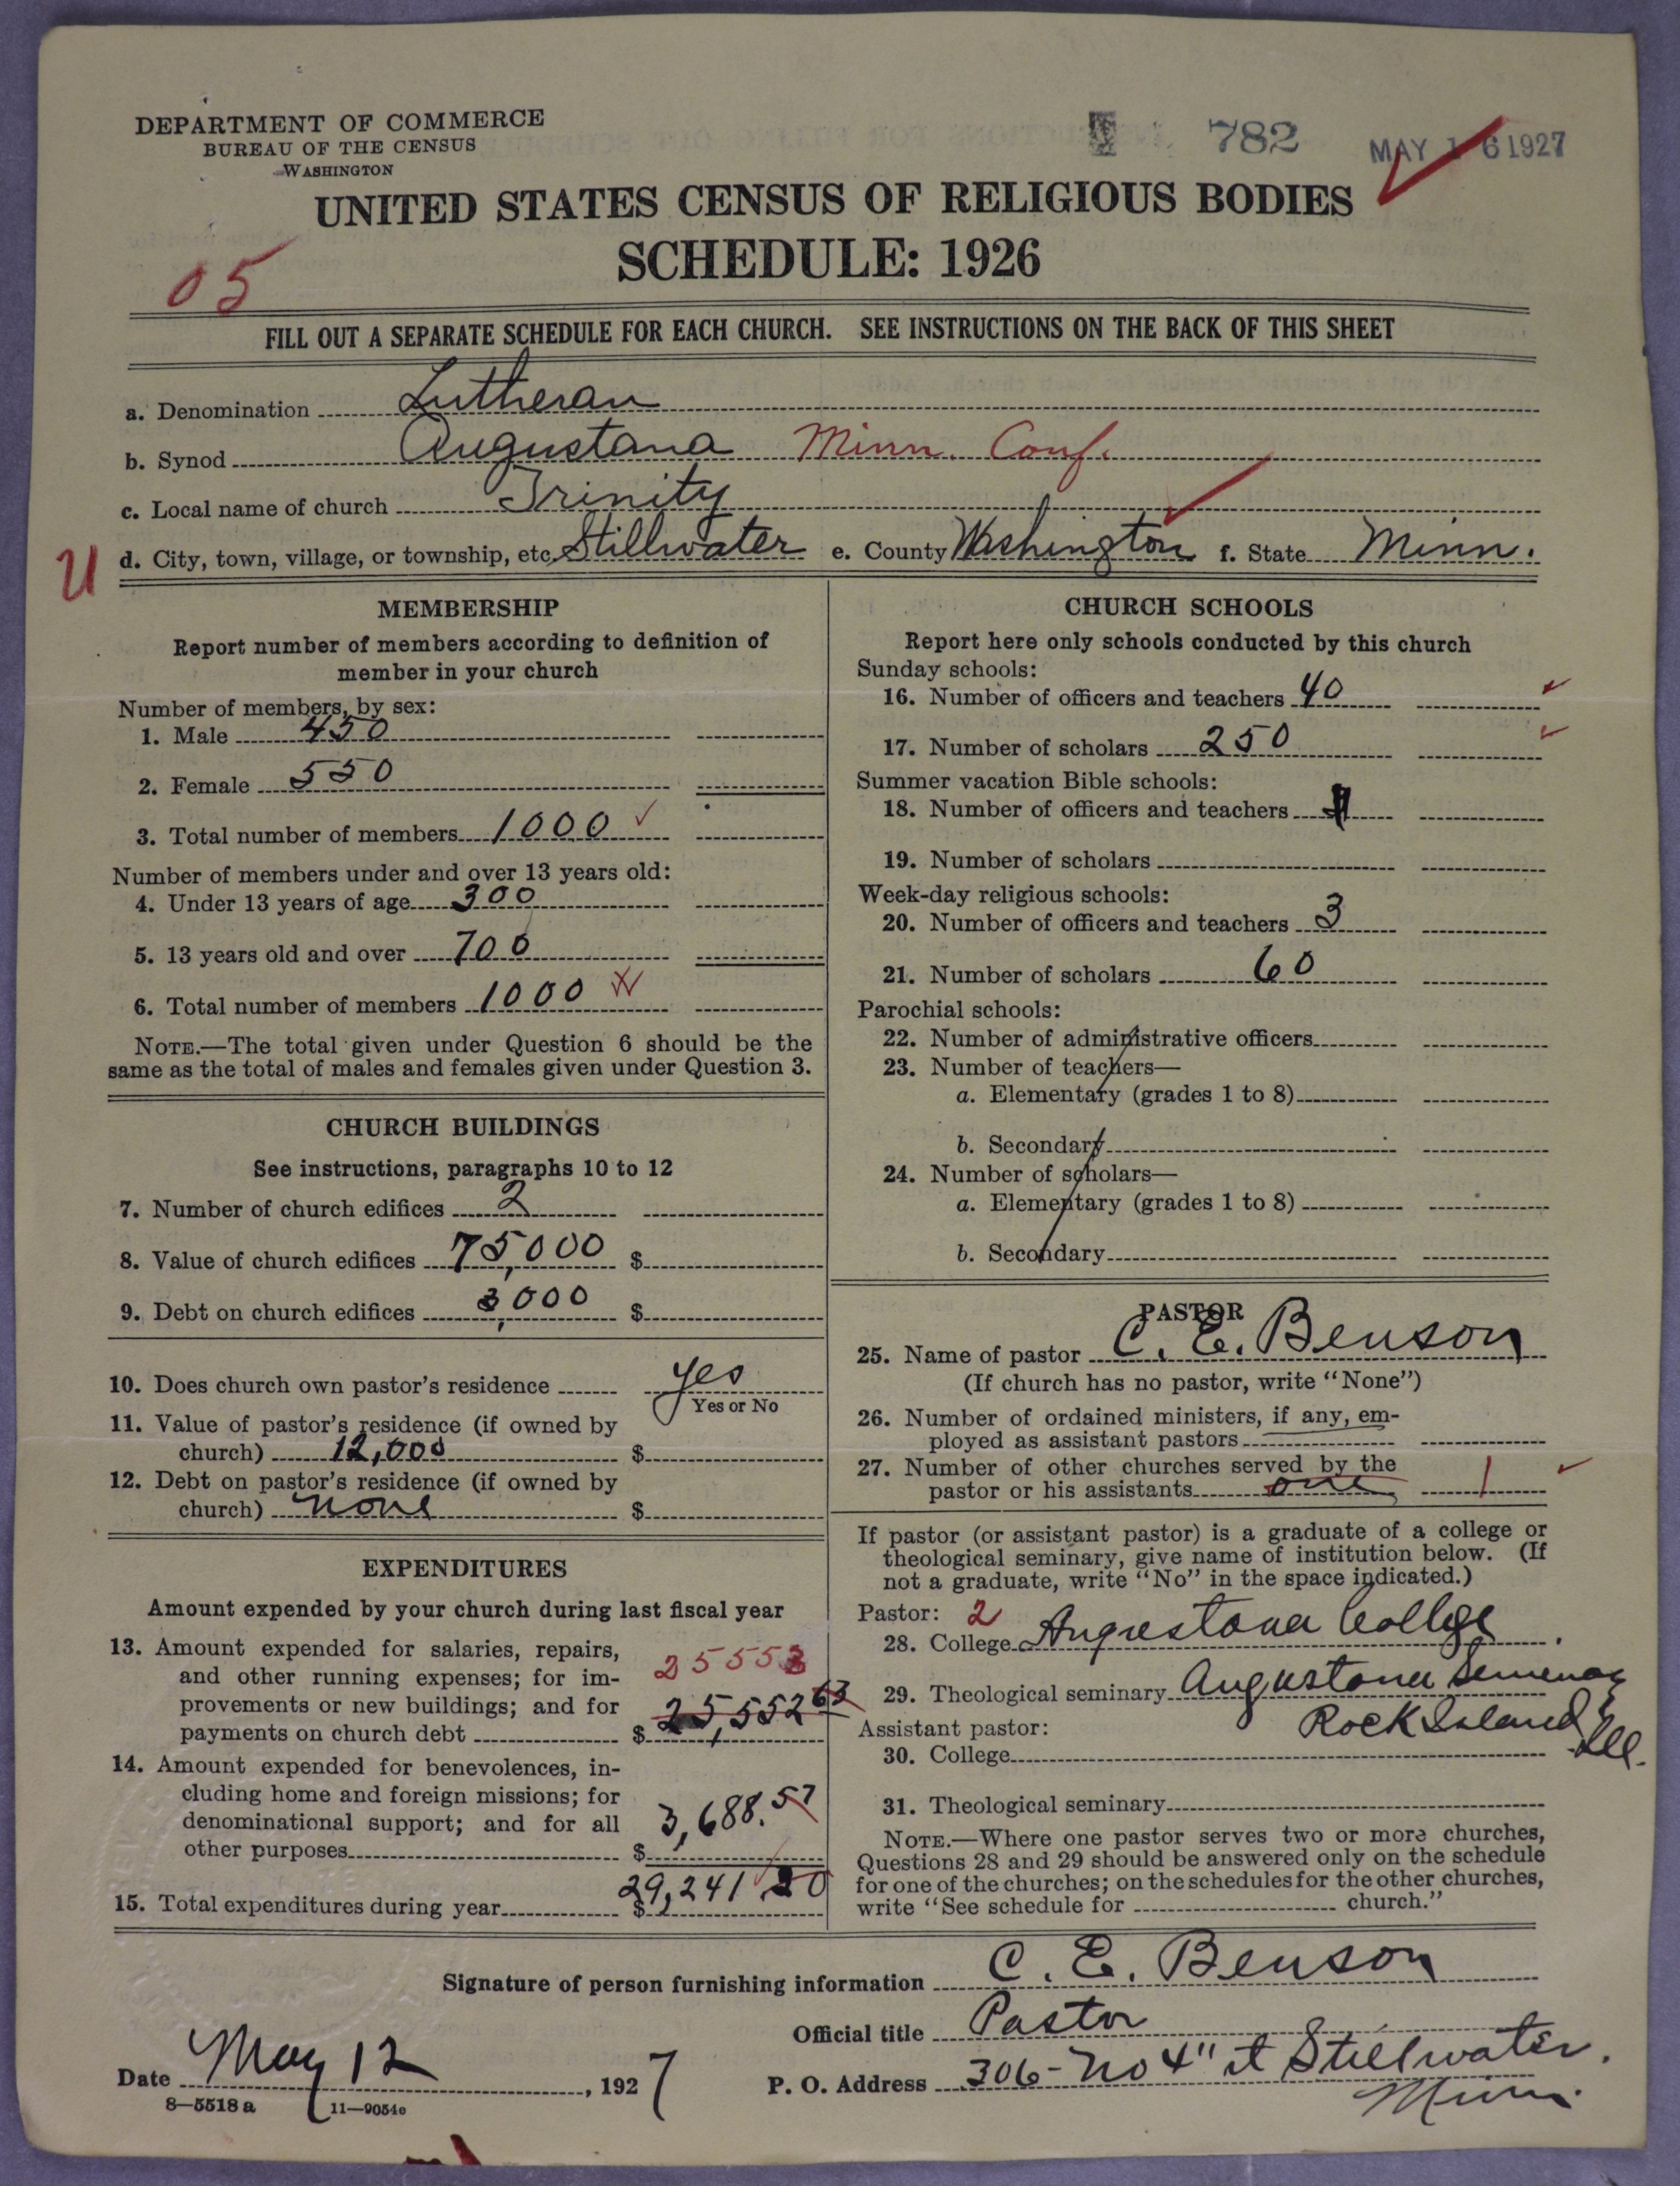 DEPARTMENT OF COMMERCE
BUREAU OF THE CENSUS
WASHINGTON
782
MAY 16 1927
UNITED STATES CENSUS OF RELIGIOUS BODIES
SCHEDULE: 1926
05
FILL OUT A SEPARATE SCHEDULE FOR EACH CHURCH. SEE INSTRUCTIONS ON THE BACK OF THIS SHEET
a. Denomination Lutheran
b. Synod Augustana Minn. Conf.
c. Local name of church Trinity
U
d. City, town, village, or township, etc. Stillwater e. County Washington f. State Minn.
MEMBERSHIP
Report number of members according to definition of
member in your church
Number of members, by sex:
1. Male 450
2. Female 550
3. Total number of members 1000 ✓
Number of members under and over 13 years old:
4. Under 13 years of age 300
5. 13 years old and over 700
6. Total number of members 1000
NOTE.—The total given under Question 6 should be the
same as the total of males and females given under Question 3.
CHURCH BUILDINGS
See instructions, paragraphs 10 to 12
7. Number of church edifices 2
8. Value of church edifices 75,000 $
9. Debt on church edifices 3,000 $
10. Does church own pastor's residence yes
Yes or No
11. Value of pastor's residence (if owned by
church) 12,000 $
12. Debt on pastor's residence (if owned by
church) none $
EXPENDITURES
Amount expended by your church during last fiscal year
13. Amount expended for salaries, repairs,
and other running expenses; for im-
provements or new buildings; and for
payments on church debt $ 25,552 63
25553
14. Amount expended for benevolences, in-
cluding home and foreign missions; for
denominational support; and for all
other purposes $ 3,688.57
15. Total expenditures during year $ 29,241 20
CHURCH SCHOOLS
Report here only schools conducted by this church
Sunday schools:
16. Number of officers and teachers 40 ✓
17. Number of scholars 250 ✓
Summer vacation Bible schools:
18. Number of officers and teachers
19. Number of scholars
Week-day religious schools:
20. Number of officers and teachers 3
21. Number of scholars 60
Parochial schools:
22. Number of administrative officers
23. Number of teachers—
a. Elementary (grades 1 to 8)
b. Secondary
24. Number of scholars—
a. Elementary (grades 1 to 8)
b. Secondary
PASTOR
25. Name of pastor C. E. Benson
(If church has no pastor, write "None")
26. Number of ordained ministers, if any, em-
ployed as assistant pastors
27. Number of other churches served by the
pastor or his assistants one 1 ✓
If pastor (or assistant pastor) is a graduate of a college or
theological seminary, give name of institution below. (If
not a graduate, write "No" in the space indicated.)
Pastor: 2
28. College Augustana College
29. Theological seminary Augustana Seminary
Rock Island, Ill.
Assistant pastor:
30. College
31. Theological seminary
NOTE.—Where one pastor serves two or more churches,
Questions 28 and 29 should be answered only on the schedule
for one of the churches; on the schedules for the other churches,
write "See schedule for church."
Signature of person furnishing information C. E. Benson
Official title Pastor
Date May 12, 1927
P. O. Address 306 - No 4" st Stillwater.
Minn.
8—5518 a 11—9054e